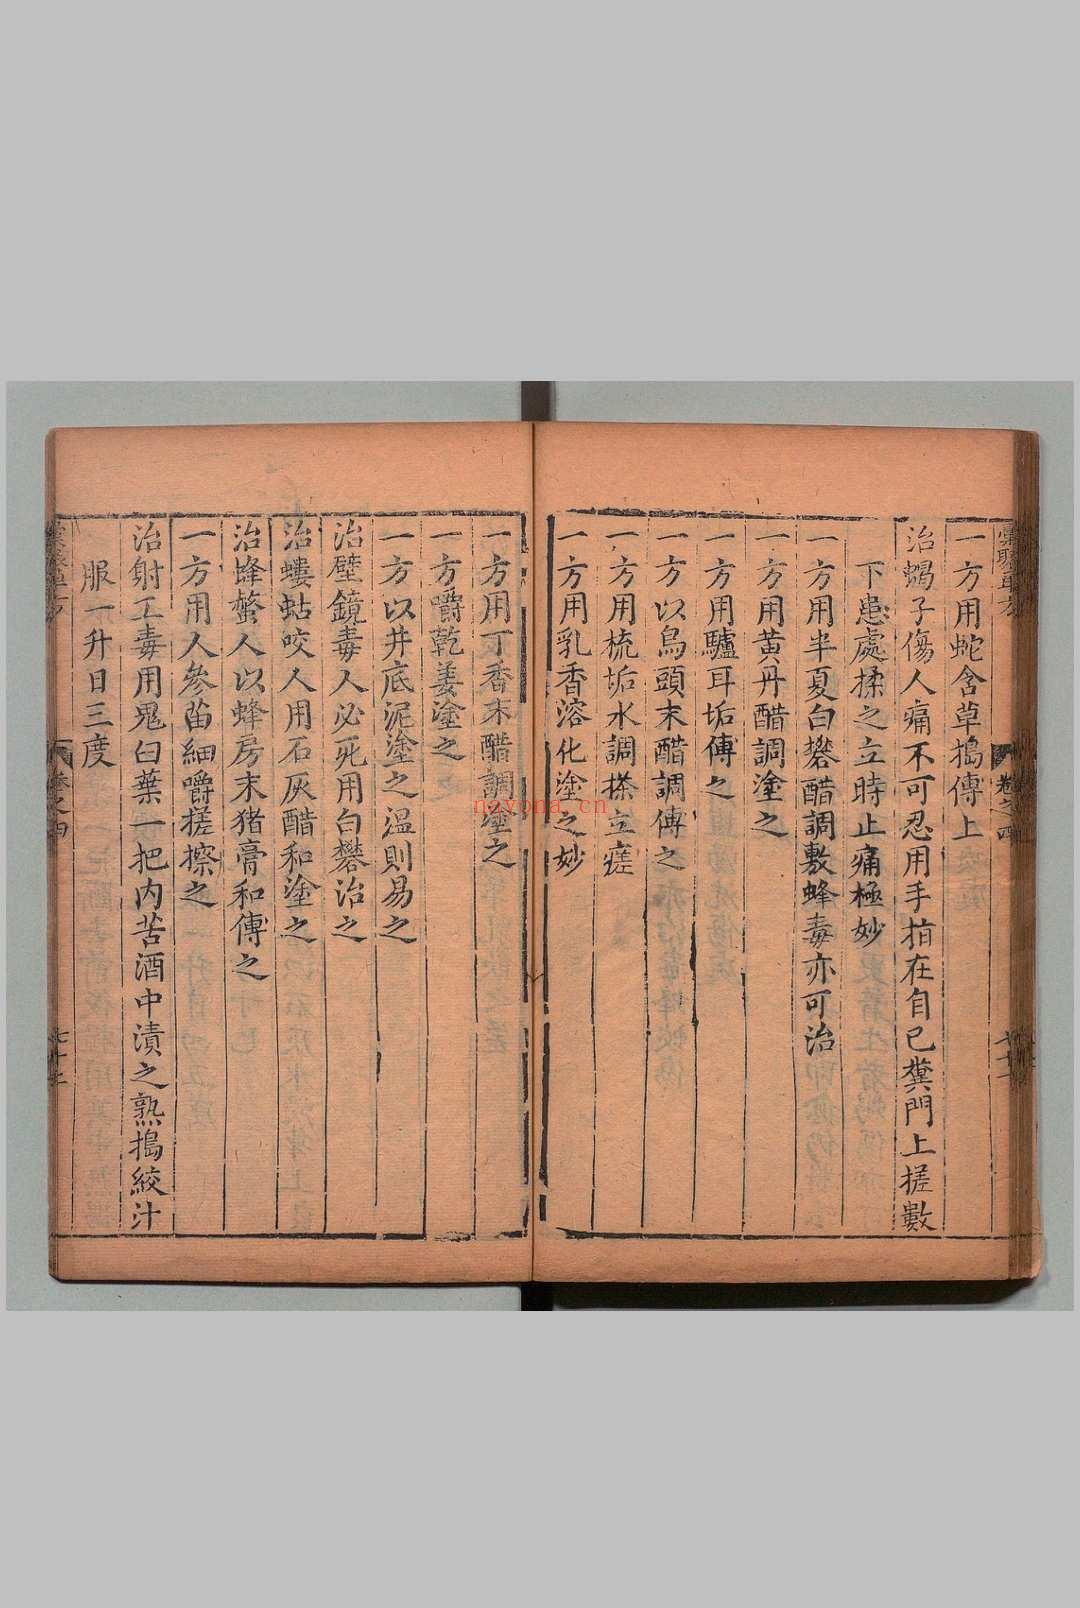 一方用蛇含草搗傅上
治蝎子傷人痛不可忍用手拍在自己糞門上搓數
下患處揉之立時止痛極妙
一方用半夏白礬醋調敷蜂毒亦可治
一方用黃丹醋調塗之
一方用驢耳垢傅之
一方以烏頭末醋調傅之
一方用梳垢水調搽立瘥
一方用乳香溶化塗之妙
一方用丁香末醋調塗之
一方嚼乾姜塗之
一方以井底泥塗之温則易之
治壁鏡毒人必死用白礬治之
治螻蛄咬人用石灰醋和塗之
治蜂螫人以蜂房末猪膏和傅之
一方用人參苗細嚼搓擦之
治射工毒用鬼臼葉一把内苦酒中漬之熟搗絞汁
服一升日三度
卷之四
nayona.cn